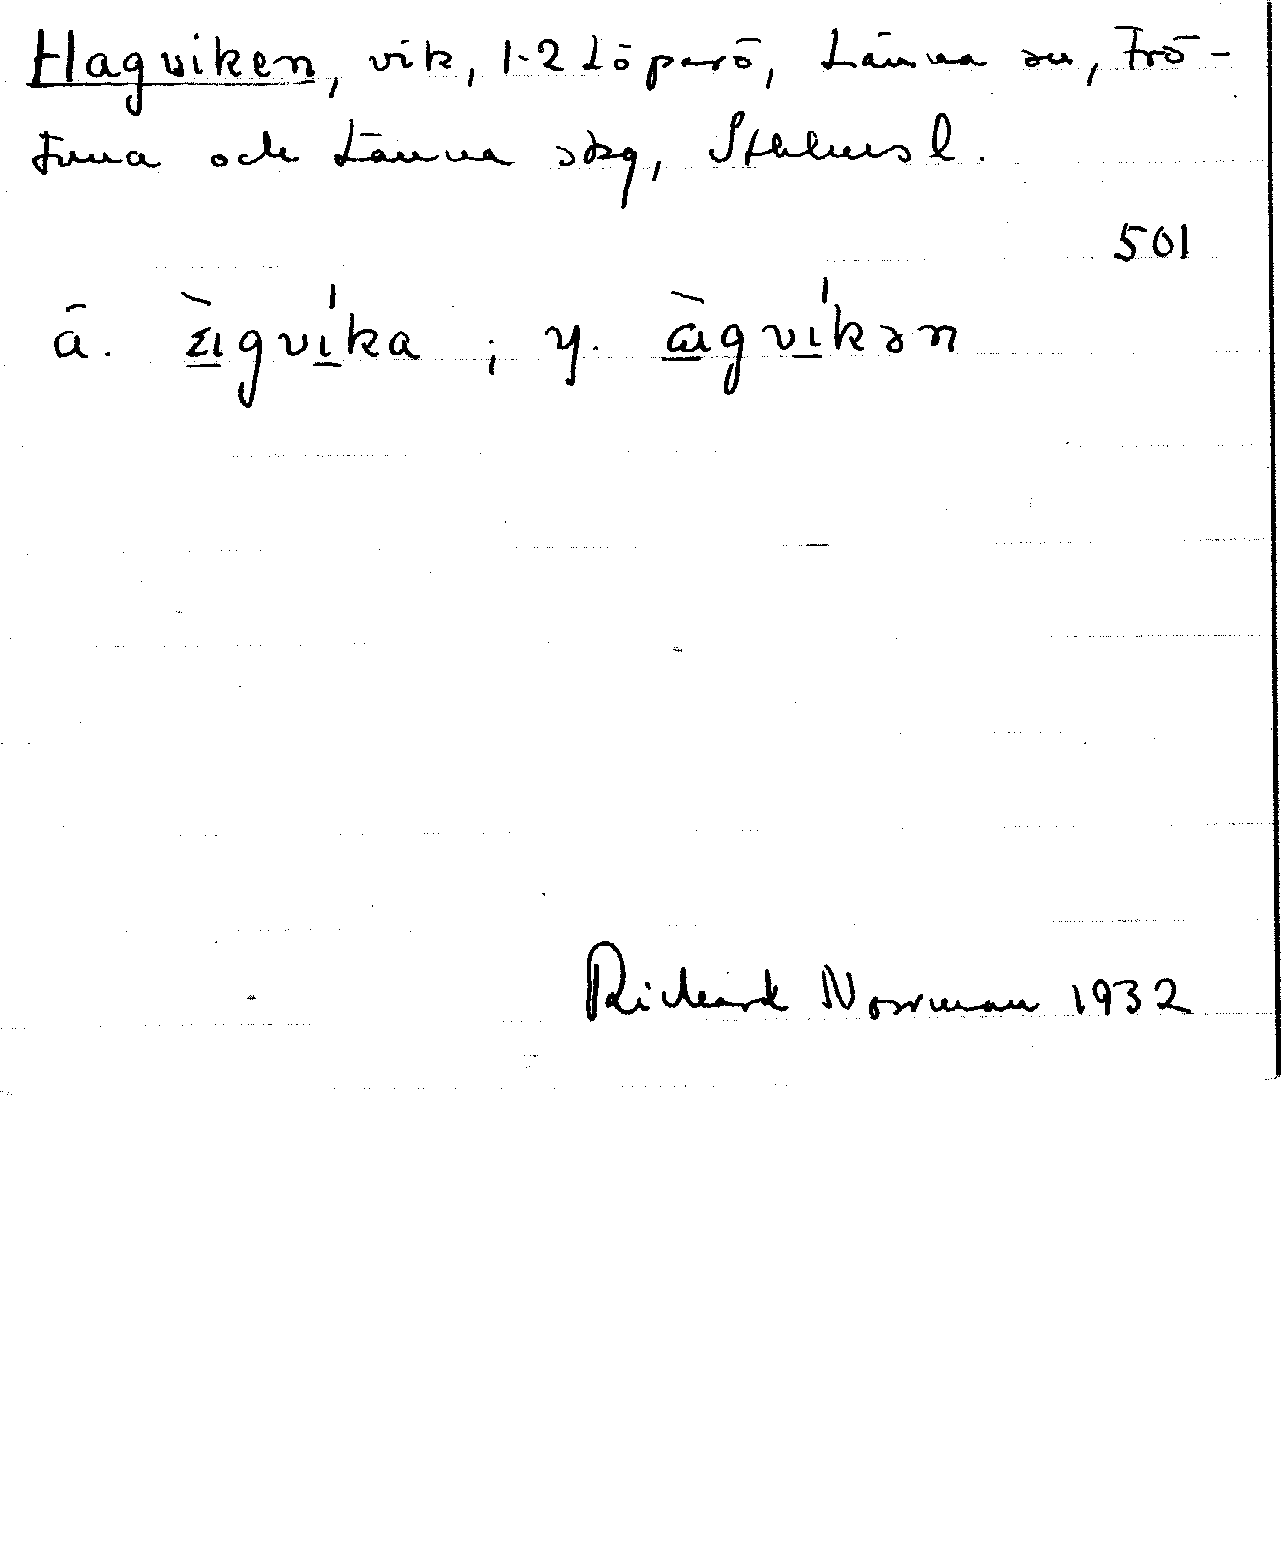 Hagviken, vik, 1-2 Löparö, Länna sn, Frö-
tuna och Länna skg, Sthlms l.
501
ä. ὰgvíka ; y. ὰgvíkən
Richard Norrman 1932